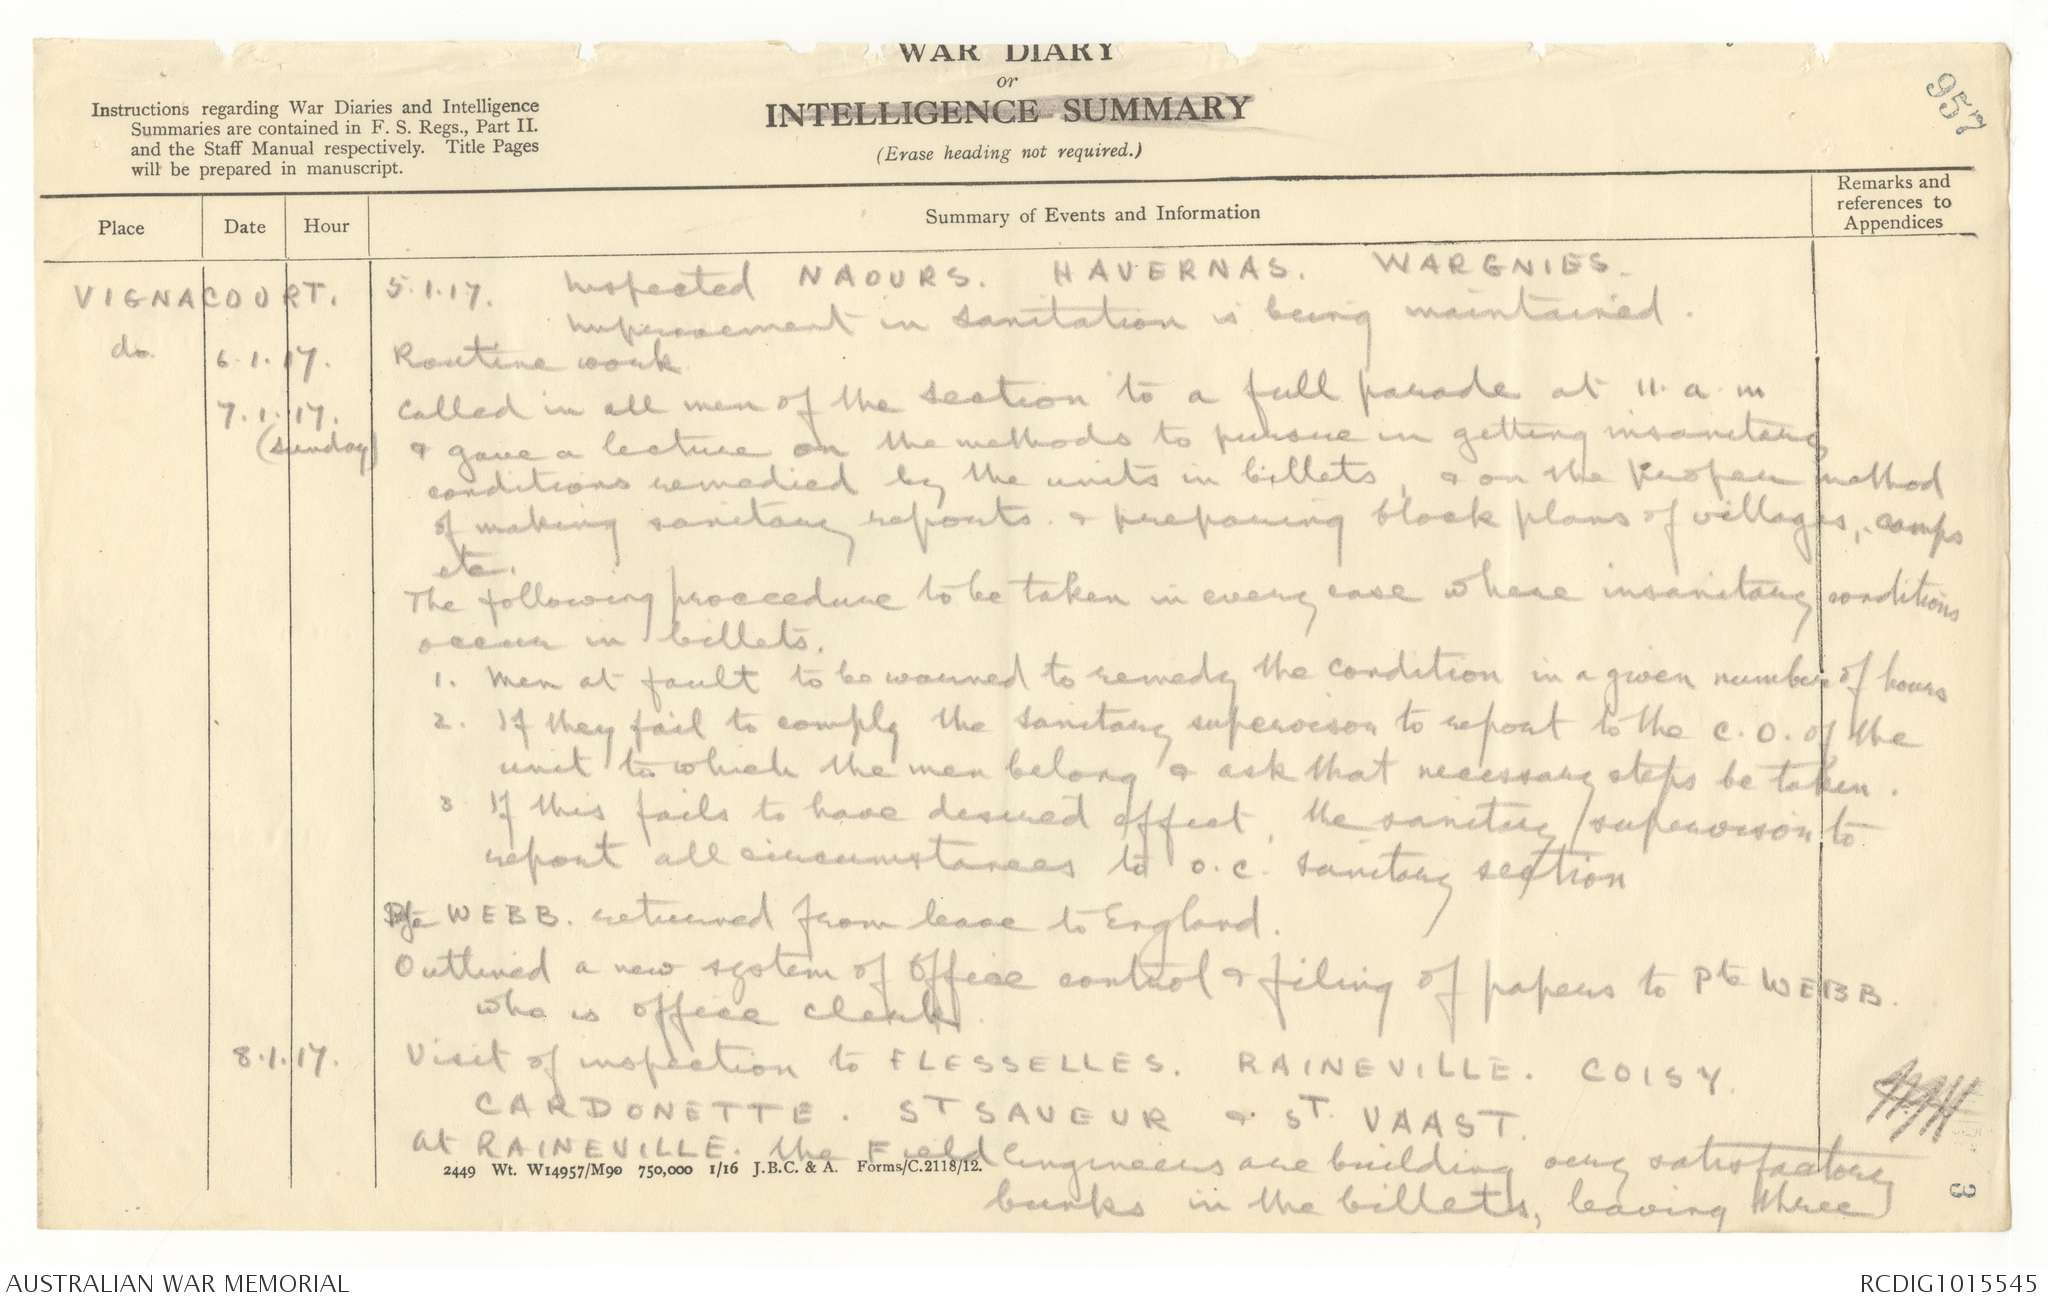 WAR DIARY
or
INTELLIGENCE SUMMARY
(Erase heading not required.)
Instructions regarding War Diaries and Intelligence
Summaries are contained in F. S. Regs., Part II.
and the Staff Manual respectively. Title Pages
will be prepared in manuscript.
957
Place
Date
Hour
Summary of Events and Information
Remarks and
references to
Appendices
VIGNACOURT. 5.1.17. Inspected NAOURS. HAVERNAS. WARGNIES.
Improvement in sanitation is being maintained.
do. 6.1.17. Routine work
7.1.17. Called in all men of the section to a full parade at 11. a.m
(Sunday) & gave a lecture on the methods to pursue in getting insanitary
conditions remedied by the units in billets, & on the proper method
of making sanitary reports. & preparing block plans of villages, camps
etc.
The following proceedure to be taken in every case where insanitary conditions
occur in billets.
1. Men at fault to be warned to remedy the condition in a given number of hours
2. If they fail to comply the sanitary supervisor to report to the C.O. of the
unit to which the men belong & ask that necessary steps be taken.
3 If this fails to have desired effect, the sanitary supervisor to
report all circumstances to O.C. Sanitary section
Pte WEBB. returned from leave to England.
Outlined a new system of Office control & filing of papers to Pte WEBB.
who is office clerk.
8.1.17. Visit of inspection to FLESSELLES. RAINEVILLE. COISY.
CARDONETTE. ST SAVEUR & ST. VAAST.
At RAINEVILLE. the Field Engineers are building very satisfactory
bunks in the billets, leaving three
2449 Wt. W14957/M90 750,000 1/16 J.B.C. & A. Forms/C.2118/12.
3
AUSTRALIAN WAR MEMORIAL
RCDIG1015545